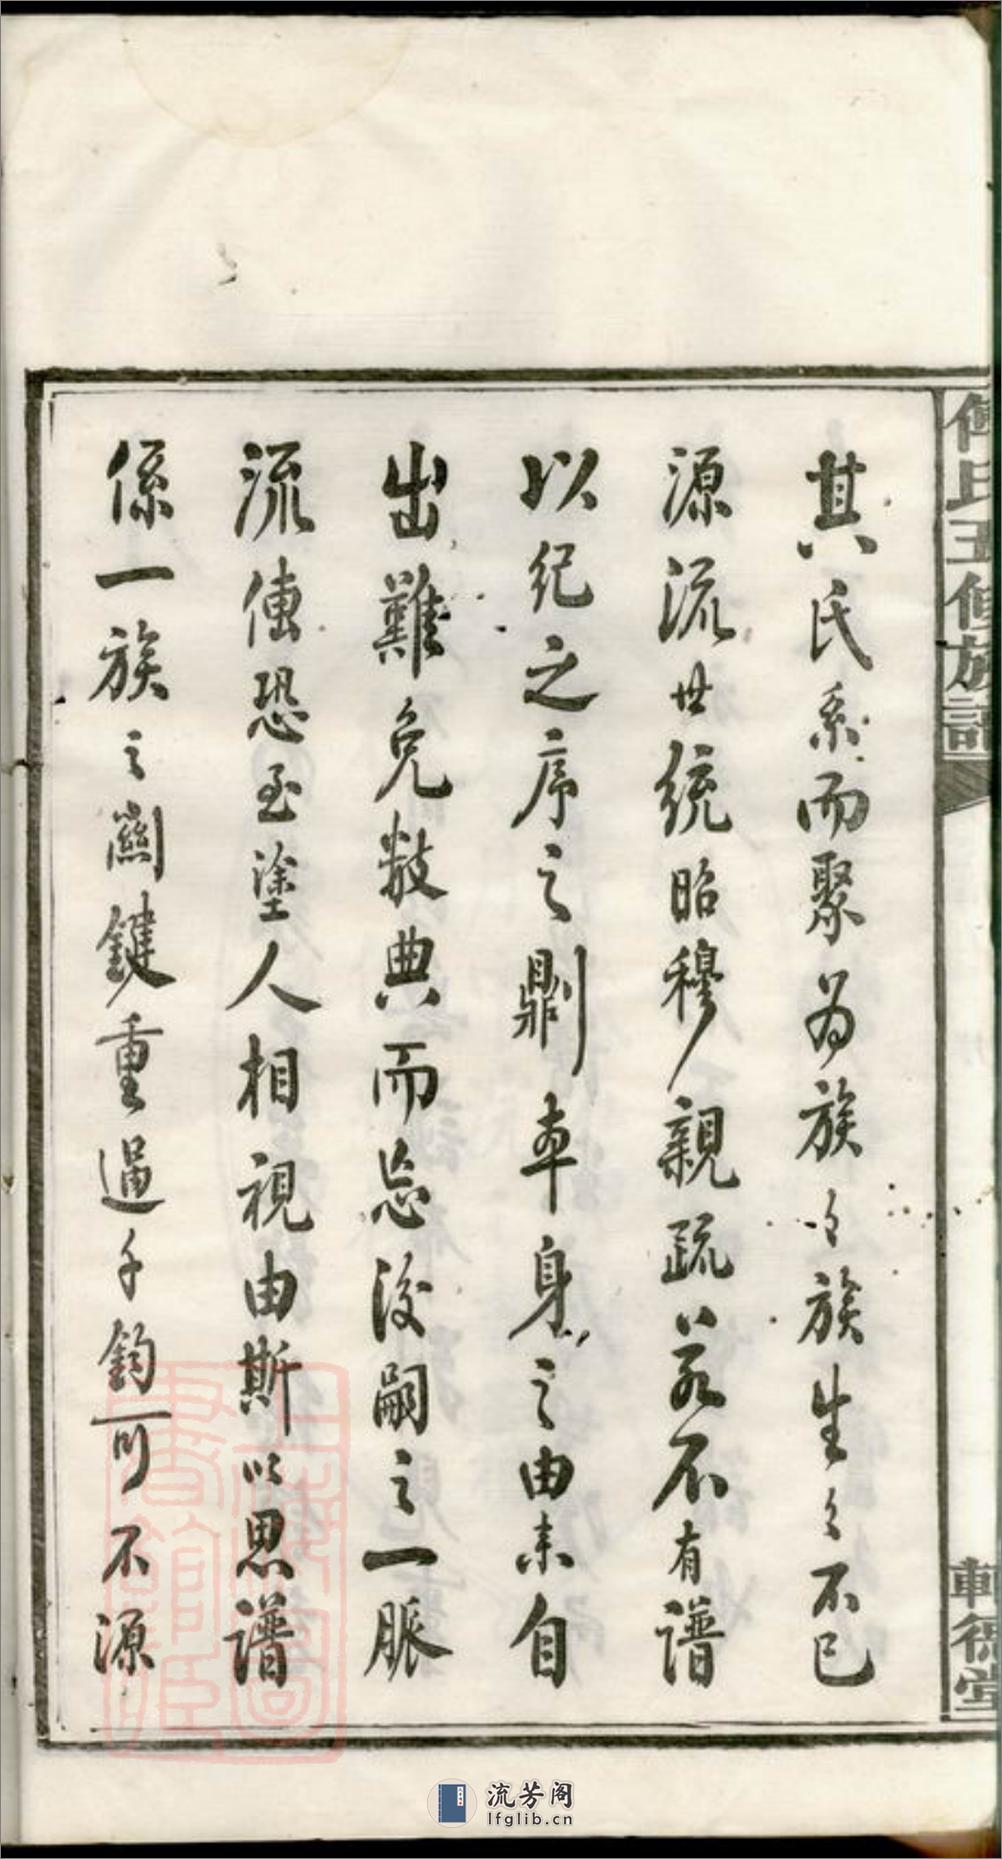 傅氏五修族譜
軒德堂
其氏系而聚为族々族生々不已
源流世統昭穆親疏苟不有譜
以紀之序之則本身之由来自
出難免數典而忘後嗣之一脈
流傳恐至塗人相視由斯以思譜
係一族之關鍵重逼千鈞可不源
上海圖書館臧
流芳阁
lfglib.cn